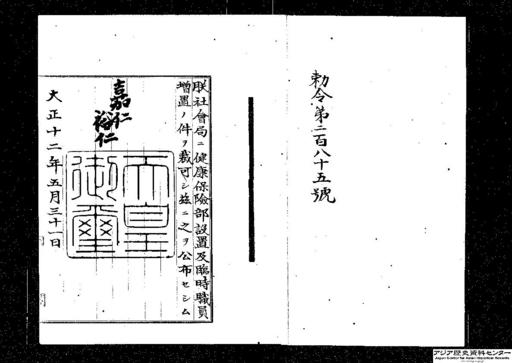 勅令第二百八十五號
朕社會局ニ健康保險部設置及臨時職員
增置ノ件ヲ裁可シ茲ニ之ヲ公布セシム
嘉仁
裕仁
天皇
御璽
大正十二年五月三十一日
アジア歴史資料センター
Japan Center for Asian Historical Records